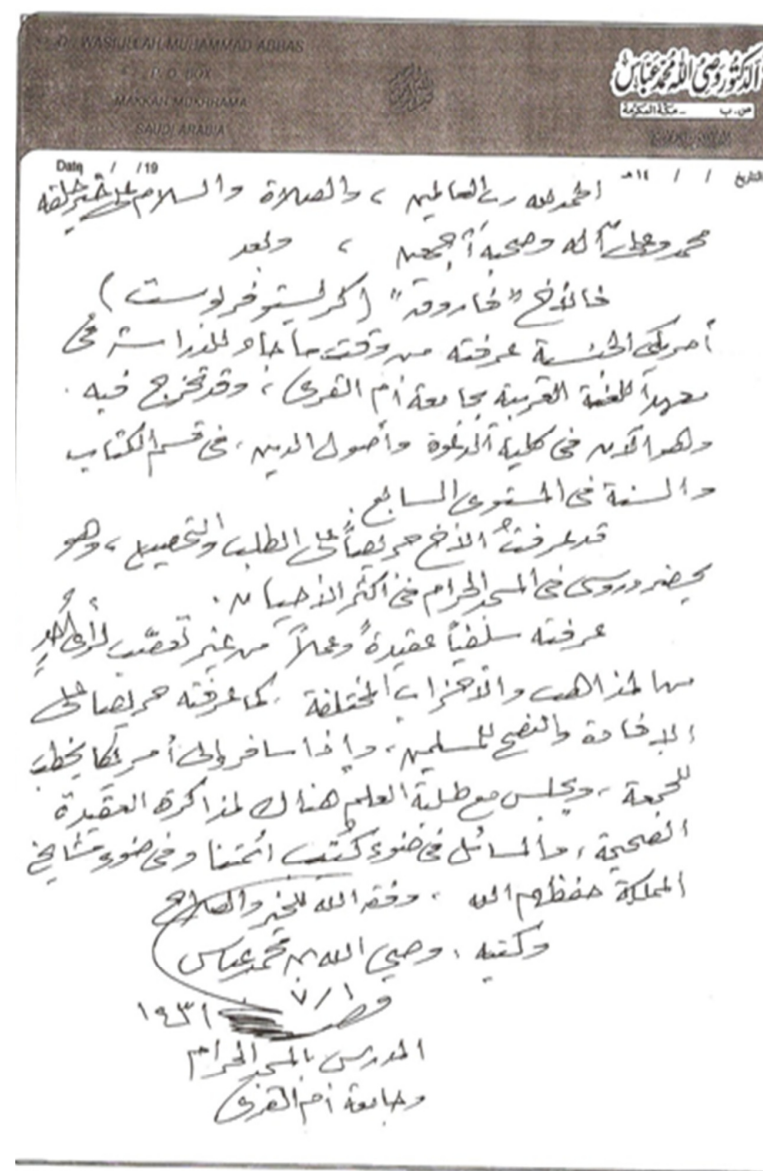 D. WASIULLAH MUHAMMAD ABBAS
P. O. BOX
MAKKAH MUKHRRAMA
SAUDI ARABIA
الدكتور وصي الله محمد عباس
ص. ب - مكة المكرمة
Date / / 19
التاريخ / / ١٤هـ
الحمد لله رب العالمين ، والصلاة والسلام على خير خلقه
محمد وعلى آله وصحبه أجمعين ، وبعد
فالأخ "فاروق" (كرليستوفر لوست)
أمريكي الجنسية عرفته من وقت ما جاء للدراسة في
معهد اللغة العربية بجامعة أم القرى ، وقد تخرج فيه .
وهو الآن في كلية الدعوة وأصول الدين ، في قسم الكتاب
والسنة في المستوى السابع .
قد عرفتُ الأخ حريصاً على الطلب والتحصيل ، وهو
يحضر دروسي في المسجد الحرام في أكثر الأحيان .
عرفته سلفياً عقيدةً وعملاً من غير تعصّب لرأي أحدٍ
من المذاهب والأحزاب المختلفة . كما عرفته حريصا على
الإفادة والنصح للمسلمين ، وإذا سافر إلى أمريكا يخطب
للجمعة ، ويجلس مع طلبة العلم هناك لمذاكرة العقيدة
الصحيحة ، والمسائل في ضوء كُتب أئمتنا وفي ضوء مشايخ
المملكة حفظهم الله ، وفقه الله للخير والصلاح
وكتبه ، وصي الله بن محمد عباس
١ / ٧
١٤٣١
المدرس بالمسجد الحرام
وجامعة أم القرى